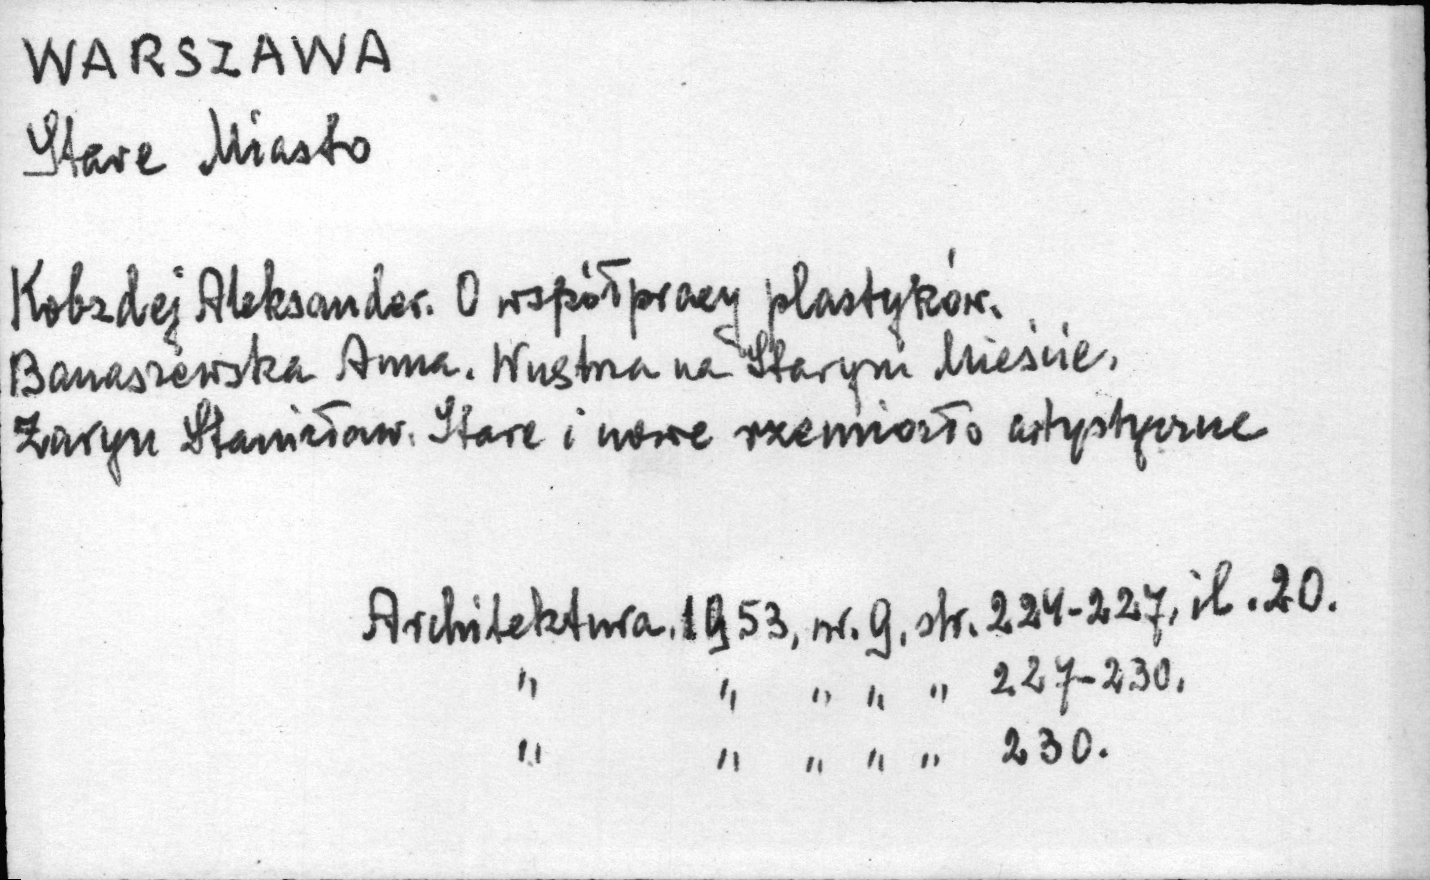 WARSZAWA
Stare Miasto
Kobzdej Aleksander. O współpracy plastyków.
Banaszewska Anna. Wnętrza na Starym Mieście.
Żaryn Stanisław. Stare i nowe rzemiosło artystyczne
Architektura. 1953, nr. 9, str. 224-227, il. 20.
" " " " " 227-230.
" " " " " 230.